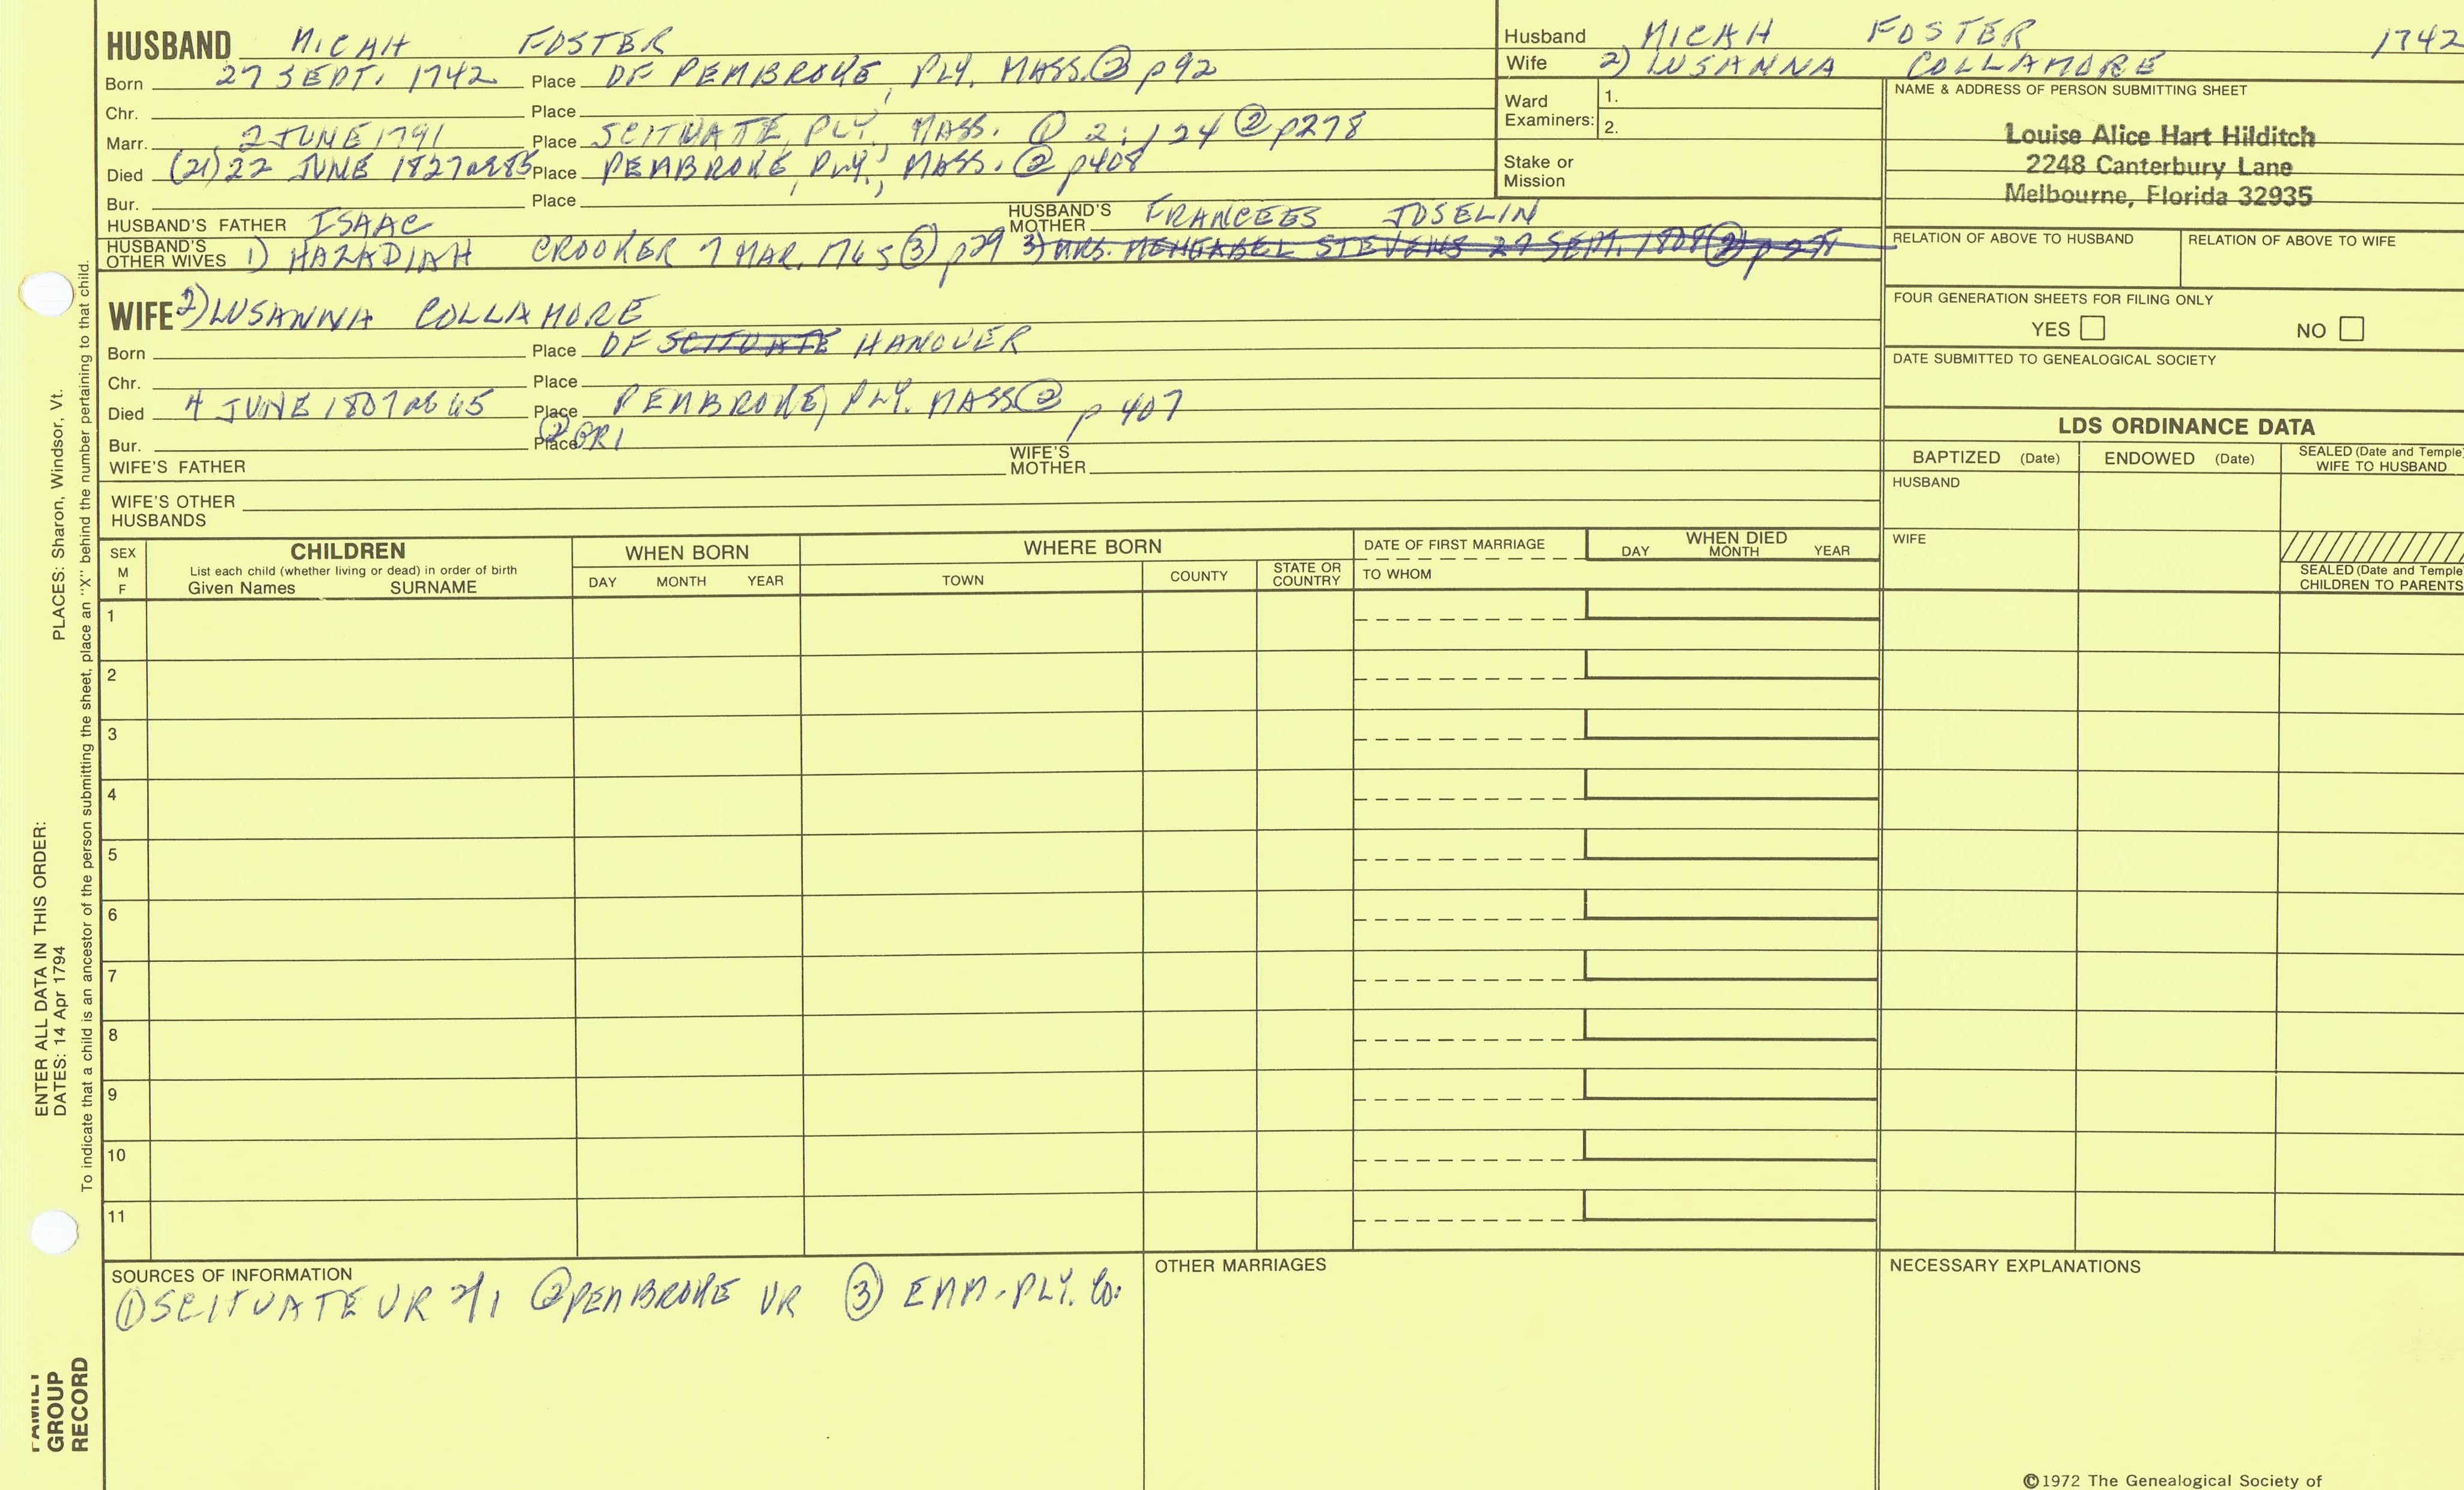 HUSBAND MICAH FOSTER
Born 27 SEPT. 1742 Place OF PEMBROKE, PLY. MASS. ② p92
Chr. Place
Marr. 2 JUNE 1791 Place SCITUATE, PLY, MASS. ① 2:124 ② p278
Died (21) 22 JUNE 1827 ae 85 Place PEMBROKE, PLY., MASS. ② p408
Bur. Place
HUSBAND'S FATHER ISAAC HUSBAND'S MOTHER FRANCEES JOSELIN
HUSBAND'S OTHER WIVES 1) HAZADIAH CROOKER 7 MAR. 1765 ③ p29 3) MRS. MEHETABEL STEVENS 27 SEPT. 1808 ② p
Husband MICAH FOSTER 1742
Wife 2) LUSANNA COLLAMORE
Ward Examiners: 1.
2.
Stake or Mission
NAME & ADDRESS OF PERSON SUBMITTING SHEET
Louise Alice Hart Hilditch
2248 Canterbury Lane
Melbourne, Florida 32935
RELATION OF ABOVE TO HUSBAND RELATION OF ABOVE TO WIFE
FOUR GENERATION SHEETS FOR FILING ONLY
YES NO
DATE SUBMITTED TO GENEALOGICAL SOCIETY
WIFE 2) LUSANNA COLLAMORE
Born Place OF SCITUATE HANOVER
Chr. Place
Died 4 JUNE 1807 ae 65 Place PEMBROKE, PLY. MASS ② p 407
Bur. Place ② GR1
WIFE'S FATHER WIFE'S MOTHER
WIFE'S OTHER HUSBANDS
LDS ORDINANCE DATA
BAPTIZED (Date) ENDOWED (Date) SEALED (Date and Temple) WIFE TO HUSBAND
HUSBAND
WIFE
SEALED (Date and Temple) CHILDREN TO PARENTS
SEX M F CHILDREN List each child (whether living or dead) in order of birth Given Names SURNAME
WHEN BORN DAY MONTH YEAR
WHERE BORN TOWN COUNTY STATE OR COUNTRY
DATE OF FIRST MARRIAGE TO WHOM
WHEN DIED DAY MONTH YEAR
1
2
3
4
5
6
7
8
9
10
11
SOURCES OF INFORMATION
① SCITUATE VR 2/1 ② PEMBROKE VR ③ EMM. PLY. Co.
OTHER MARRIAGES
NECESSARY EXPLANATIONS
©1972 The Genealogical Society of
PLACES: Sharon, Windsor, Vt.
ENTER ALL DATA IN THIS ORDER:
DATES: 14 Apr 1794
To indicate that a child is an ancestor of the person submitting the sheet, place an "X" behind the number pertaining to that child.
FAMILY
GROUP
RECORD